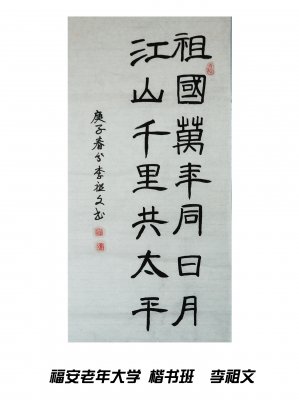 祖國萬年同日月
江山千里共太平
庚子春分李祖文书
福安老年大学 楷书班 李祖文